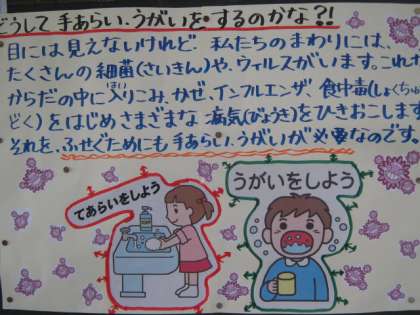 どうして手あらい、うがいをするのかな?!
目には見えないけれど、私たちのまわりには、
たくさんの細菌(さいきん)や、ウィルスがいます。これが
からだの中に入(はい)りこみ、かぜ、インフルエンザ、食中毒(しょくちゅう
どく)をはじめさまざまな病気(びょうき)をひきおこします。
それを、ふせぐためにも手あらい、うがいが必要なのです。
てあらいをしよう
うがいをしよう